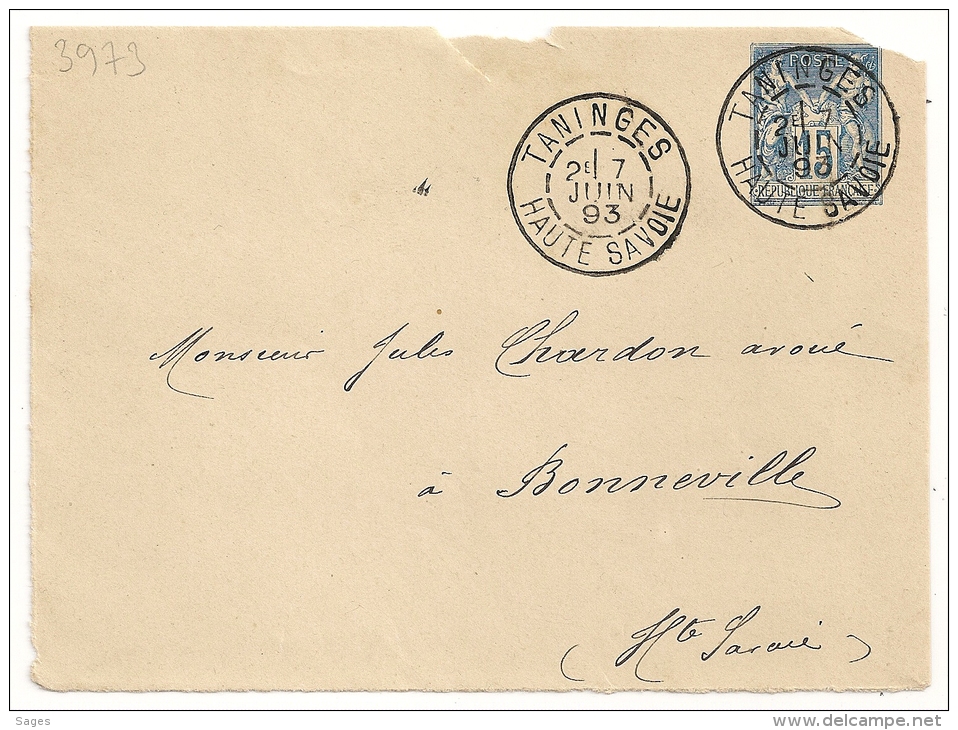 3973
POSTE
15
RÉPUBLIQUE FRANÇAISE
TANINGES
2E 7
JUIN
93
HAUTE SAVOIE
TANINGES
2E 7
JUIN
93
HAUTE SAVOIE
Monsieur Jules Chardon avoué
à Bonneville
(Hte Savoie)
Sages
www.delcampe.net